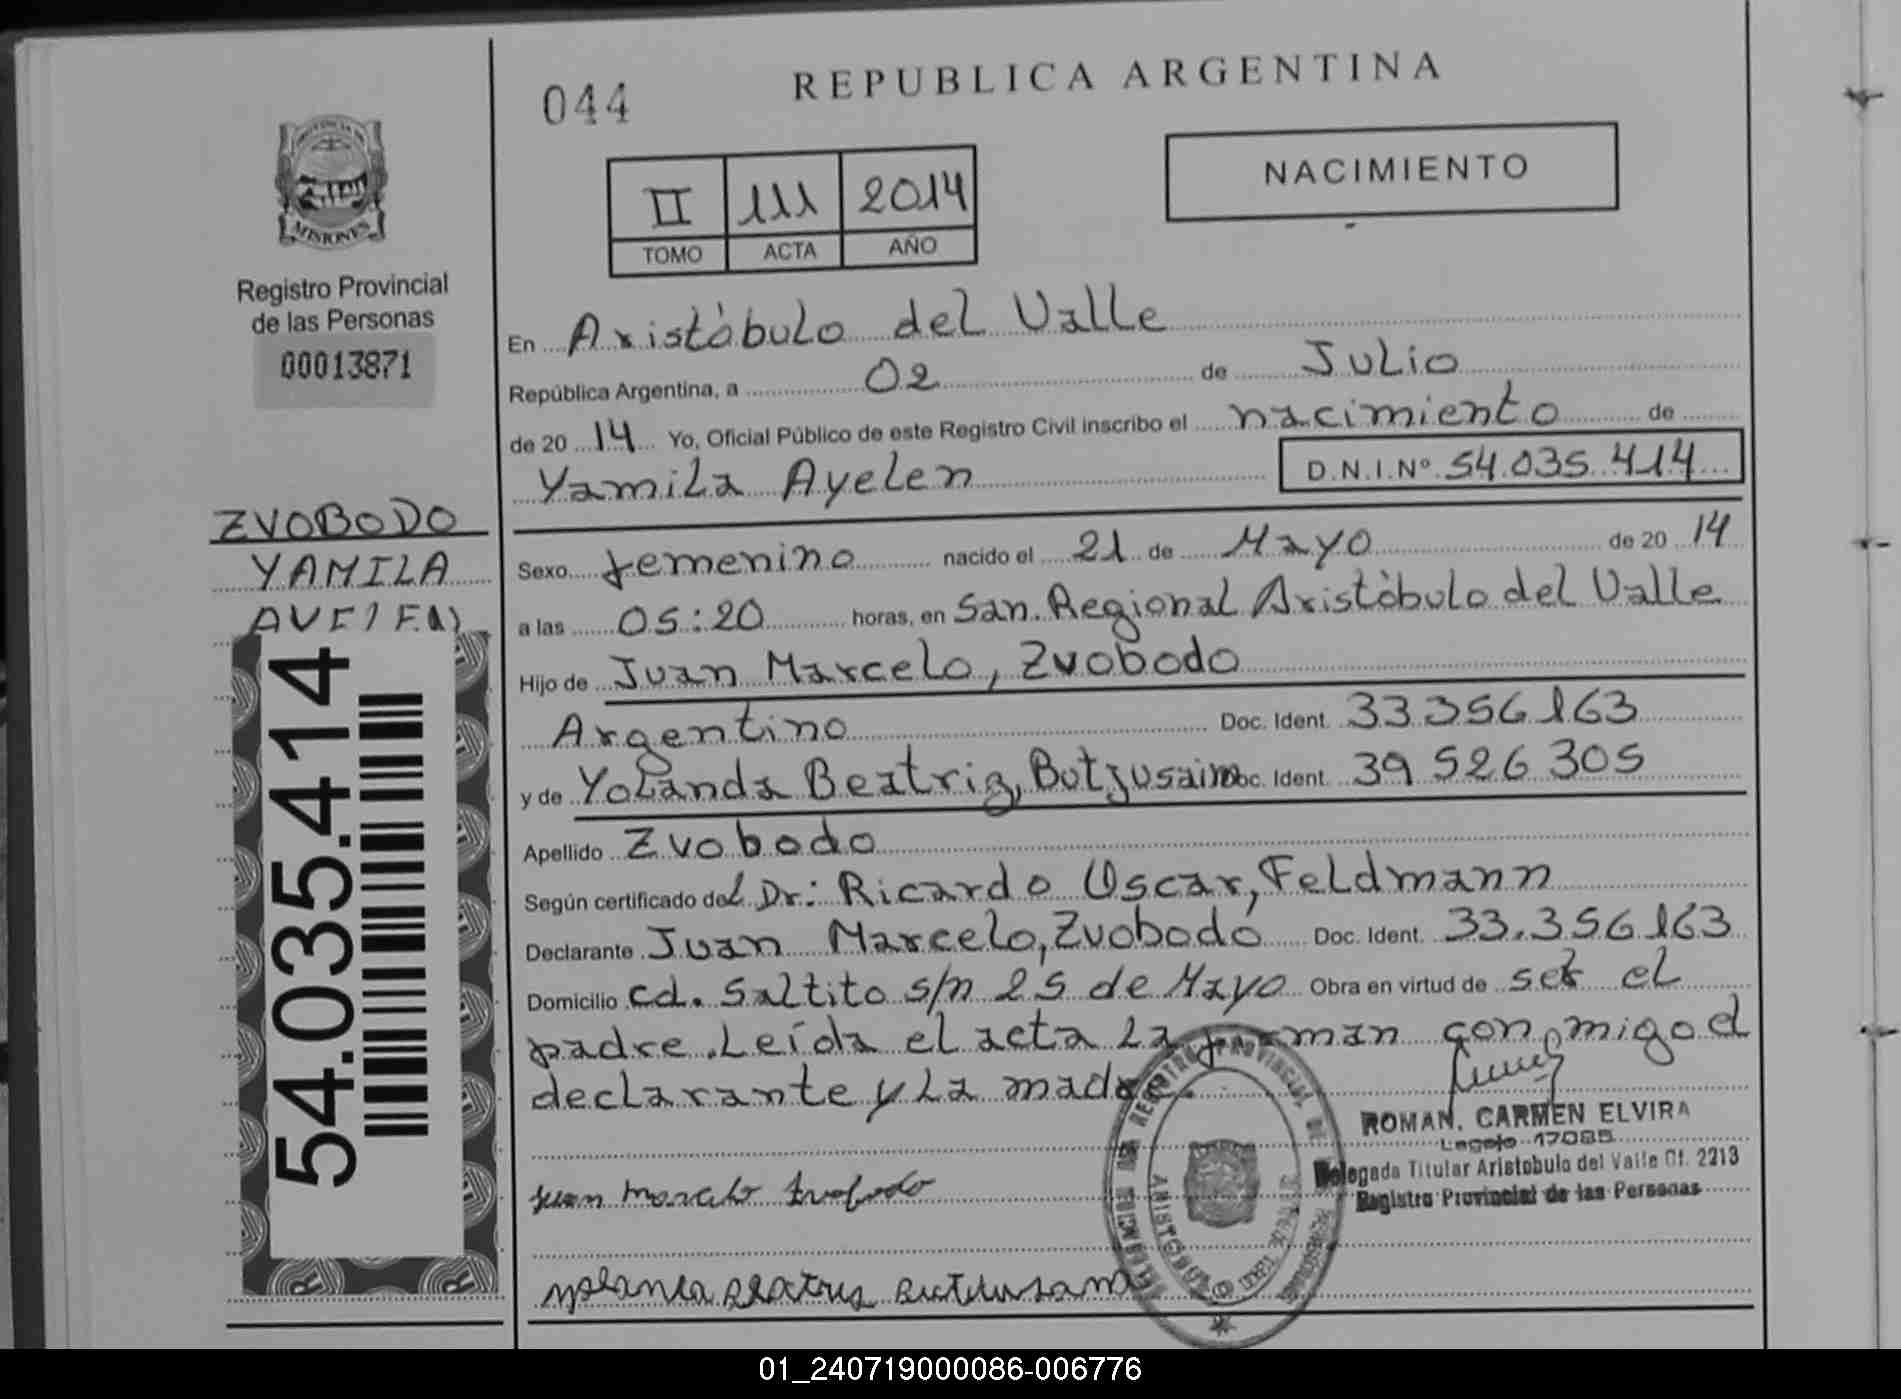 044
REPUBLICA ARGENTINA
NACIMIENTO
II 111 2014
TOMO ACTA AÑO
PROVINCIA DE
MISIONES
Registro Provincial
de las Personas
00013871
En Aristóbulo del Valle
República Argentina, a 02 de Julio
de 20 14 Yo, Oficial Público de este Registro Civil inscribo el nacimiento de
Yamila Ayelen D.N.I.Nº 54.035.414
ZVOBODO
YAMILA
AYELEN
54.035.414
Sexo femenino nacido el 21 de Mayo de 20 14
a las 05:20 horas, en San. Regional Aristóbulo del Valle
Hijo de Juan Marcelo, Zvobodo
Argentino Doc. Ident. 33356163
y de Yolanda Beatriz, Doc. Ident. 39526305
Apellido Zvobodo
Según certificado del Dr: Ricardo Oscar, Feldmann
Declarante Juan Marcelo, Zvobodo Doc. Ident. 33.356163
Domicilio cd. Saltito s/n 25 de Mayo Obra en virtud de ser el
padre. Leída el acta la firman conmigo el
declarante y la madre.
ROMAN, CARMEN ELVIRA
Legajo 17085
Delegada Titular Aristobulo del Valle Of. 2213
Registro Provincial de las Personas
Juan Marcelo Zvobodo
01_240719000086-006776